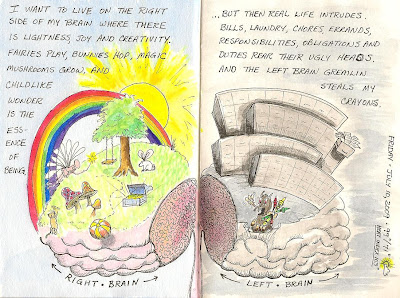 I WANT TO LIVE ON THE RIGHT
SIDE OF MY BRAIN WHERE THERE
IS LIGHTNESS JOY AND CREATIVITY.
FAIRIES PLAY, BUNNIES HOP, MAGIC
MUSHROOMS GROW, AND
CHILDLIKE
WONDER
IS THE
ESS-
ENCE
OF
BEING.
← RIGHT • BRAIN →
...BUT THEN REAL LIFE INTRUDES.
BILLS, LAUNDRY, CHORES, ERRANDS,
RESPONSIBILITIES, OBLIGATIONS AND
DUTIES REAR THEIR UGLY HEADS.
AND THE LEFT BRAIN GREMLIN
STEALS MY
CRAYONS.
← LEFT • BRAIN →
FRIDAY • JULY 10, 2009